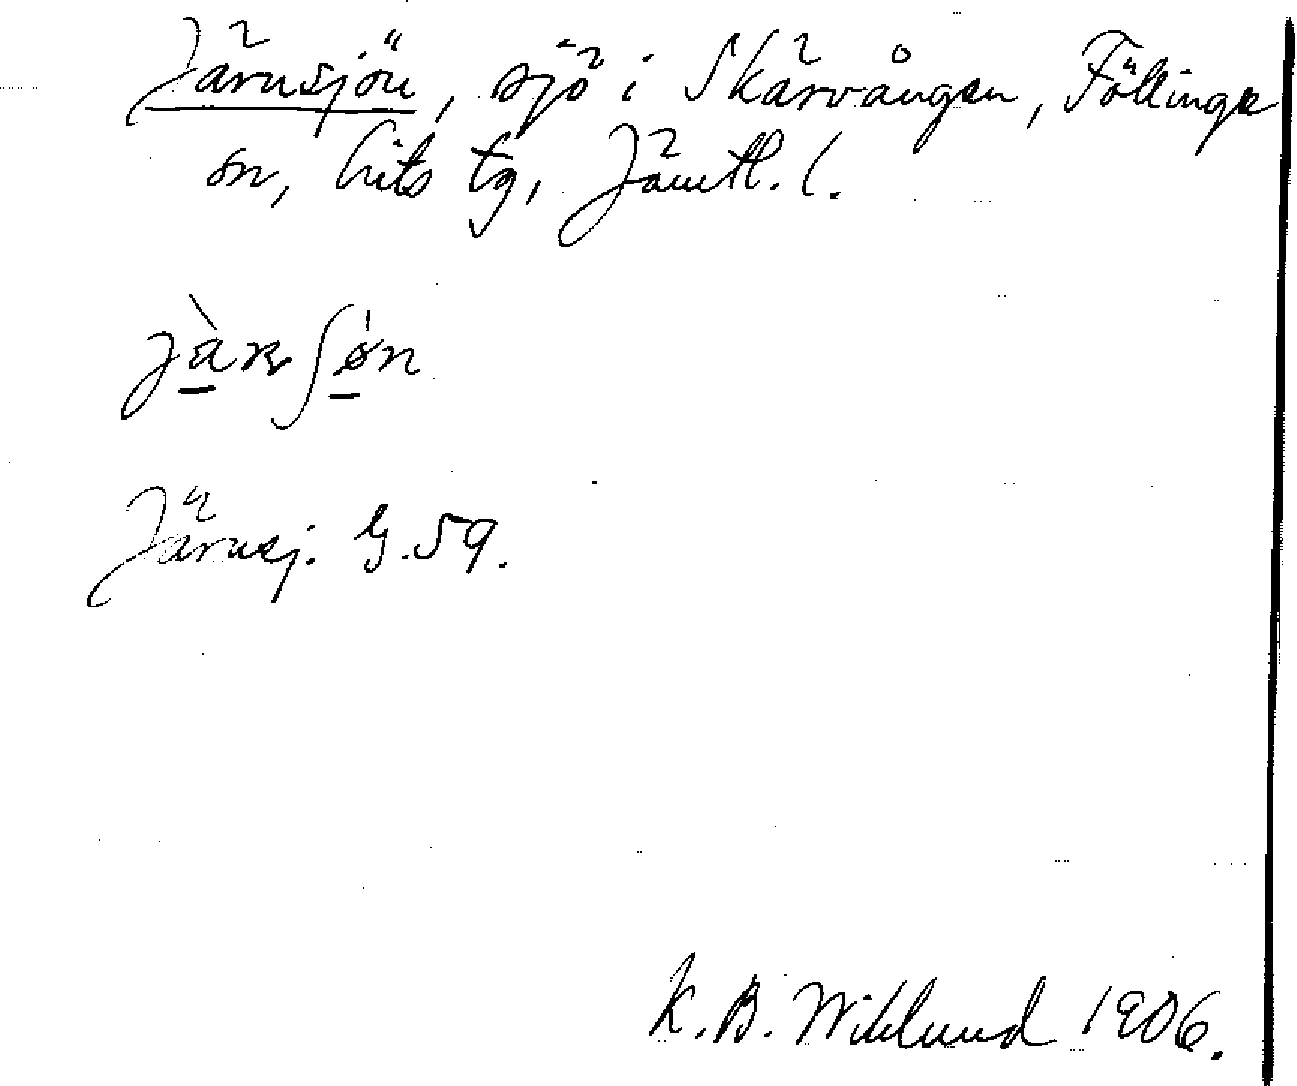 Järnsjön, sjö i Skärvången, Föllinge
sn, Lits tg, Jämtl. l.
jàrnʃøn
Järnsj. G.59.
K. B. Wiklund 1906.